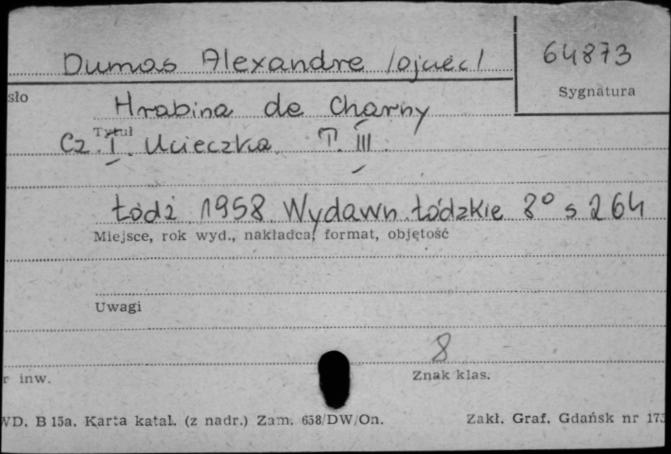 Dumas Alexandre /ojciec/
64873
Sygnatura
sło
Hrabina de Charny
Tytuł
Cz. I. Ucieczka T. III.
Łódź 1958 Wydawn. Łódzkie 8° s 264
Miejsce, rok wyd., nakładca, format, objętość
Uwagi
8
r inw.
Znak klas.
WD. B 15a. Karta katal. (z nadr.) Zam. 658/DW/On.
Zakł. Graf. Gdańsk nr 173